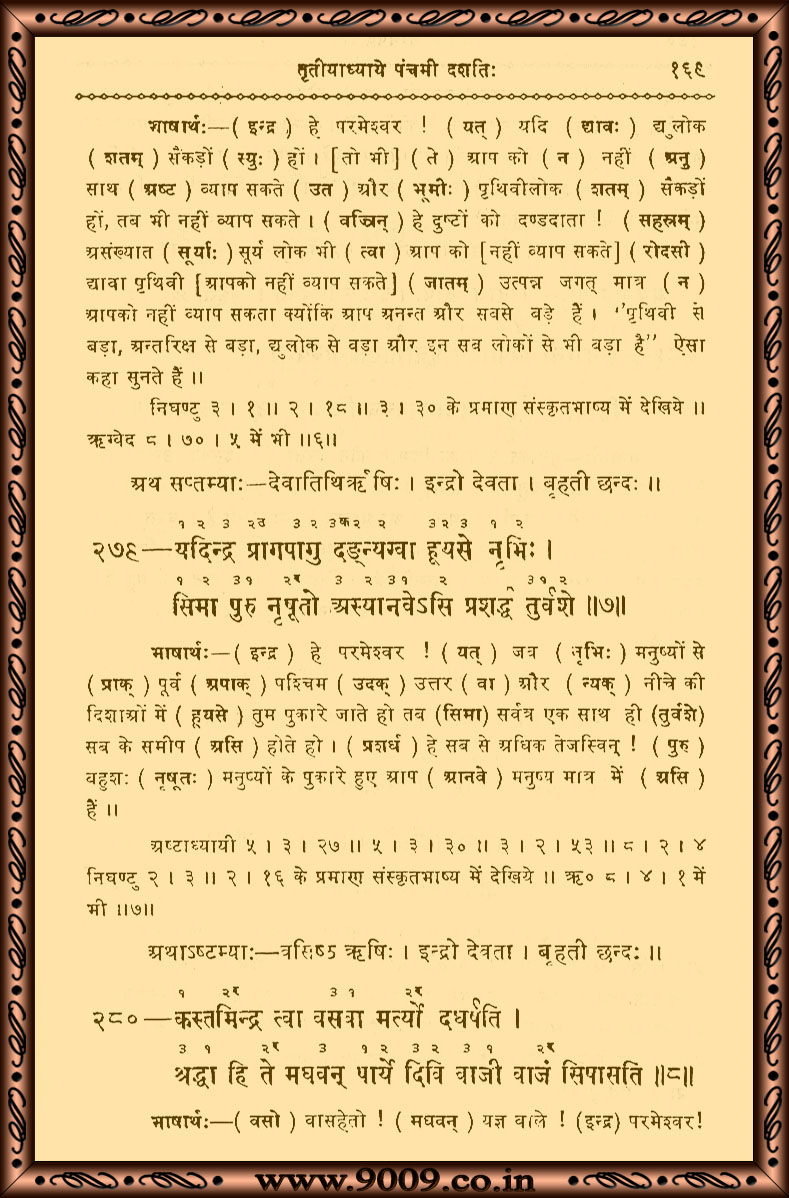 तृतीयाध्याये पंचमी दशतिः १६९
भाषार्थः—( इन्द्र ) हे परमेश्वर ! ( यत् ) यदि ( द्यावः ) द्युलोक
( शतम् ) सैंकड़ों ( स्युः ) हों । [तो भी] ( ते ) आप को ( न ) नहीं ( अनु )
साथ ( अष्ट ) व्याप सकते ( उत ) और ( भूमीः ) पृथिवीलोक ( शतम् ) सैंकड़ों
हों, तब भी नहीं व्याप सकते । ( वज्रिन् ) हे दुष्टों को दण्डदाता ! ( सहस्रम् )
असंख्यात ( सूर्याः ) सूर्य लोक भी ( त्वा ) आप को [नहीं व्याप सकते] ( रोदसी )
द्यावा पृथिवी [आपको नहीं व्याप सकते] ( जातम् ) उत्पन्न जगत् मात्र ( न )
आपको नहीं व्याप सकता क्योंकि आप अनन्त और सबसे बड़े हैं । ‘‘पृथिवी से
बड़ा, अन्तरिक्ष से बड़ा, द्युलोक से बड़ा और इन सब लोकों से भी बड़ा है’’ ऐसा
कहा सुनते हैं ।।
निघण्टु ३ । १ ।। २ । १८ ।। ३ । ३० के प्रमाण संस्कृतभाष्य में देखिये ।।
ऋग्वेद ८ । ७० । ५ में भी ।।६।।
अथ सप्तम्याः—देवातिथिर्ऋषिः । इन्द्रो देवता । बृहती छन्दः ।।
१ २ ३ २उ ३ २ ३क २ २ ३ २ ३ १ २
२७९—यदिन्द्र प्रागपागु दङ्न्यग्वा हूयसे नृभिः ।
१ २ ३१ २र ३ २ ३१ २ ३१ २
सिमा पुरु नृषूतो अस्यानवेऽसि प्रशर्द्ध तुर्वशे ।।७।।
भाषार्थः—( इन्द्र ) हे परमेश्वर ! ( यत् ) जब ( नृभिः ) मनुष्यों से
( प्राक् ) पूर्व ( अपाक् ) पश्चिम ( उदक् ) उत्तर ( वा ) और ( न्यक् ) नीचे की
दिशाओं में ( हूयसे ) तुम पुकारे जाते हो तब (सिमा) सर्वत्र एक साथ ही (तुर्वशे)
सब के समीप ( असि ) होते हो । ( प्रशर्ध ) हे सब से अधिक तेजस्विन् ! ( पुरु )
बहुशः ( नृषूतः ) मनुष्यों के पुकारे हुए आप ( आनवे ) मनुष्य मात्र में ( असि )
हैं ।।
अष्टाध्यायी ५ । ३ । २७ ।। ५ । ३ । ३० ।। ३ । २ । ५३ ।। ८ । २ । ४
निघण्टु २ । ३ ।। २ । १६ के प्रमाण संस्कृतभाष्य में देखिये ।। ऋ० ८ । ४ । १ में
भी ।।७।।
अथाऽष्टम्याः—वसिष्ठ ऋषिः । इन्द्रो देवता । बृहती छन्दः ।।
१ २र ३ १ २र
२८०—कस्तमिन्द्र त्वा वसवा मर्त्यो दधर्षति ।
३ १ २र ३ १ २ ३ २ ३ १ २र
श्रद्धा हि ते मघवन् पार्ये दिवि वाजी वाजं सिषासति ।।८।।
भाषार्थः—( वसो ) वासहेतो ! ( मघवन् ) यज्ञ वाले ! (इन्द्र) परमेश्वर!
www.9009.co.in